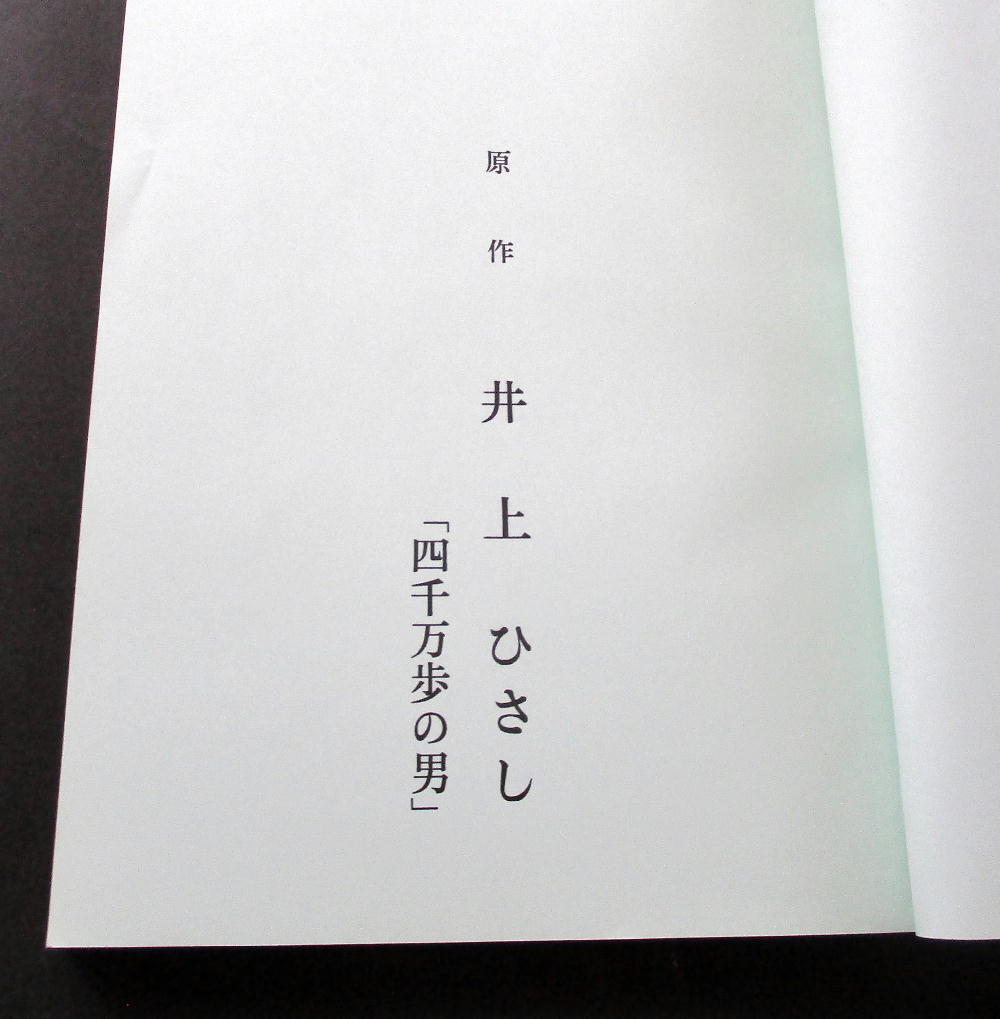 原作 井上ひさし
「四千万歩の男」